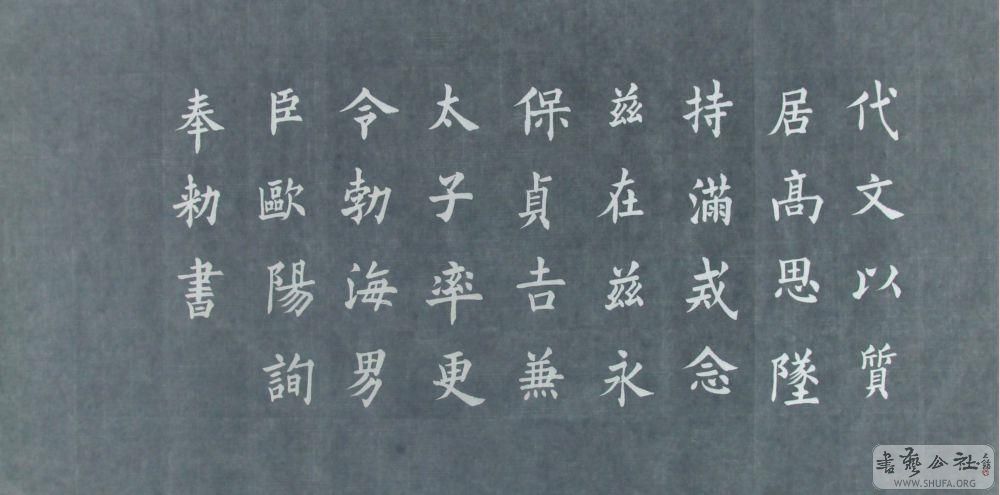 代文以質
居髙思墜
持滿戒念
茲在茲永
保貞吉兼
太子率更
令勃海男
臣歐陽詢
奉勑書
書藝公社
WWW.SHUFA.ORG